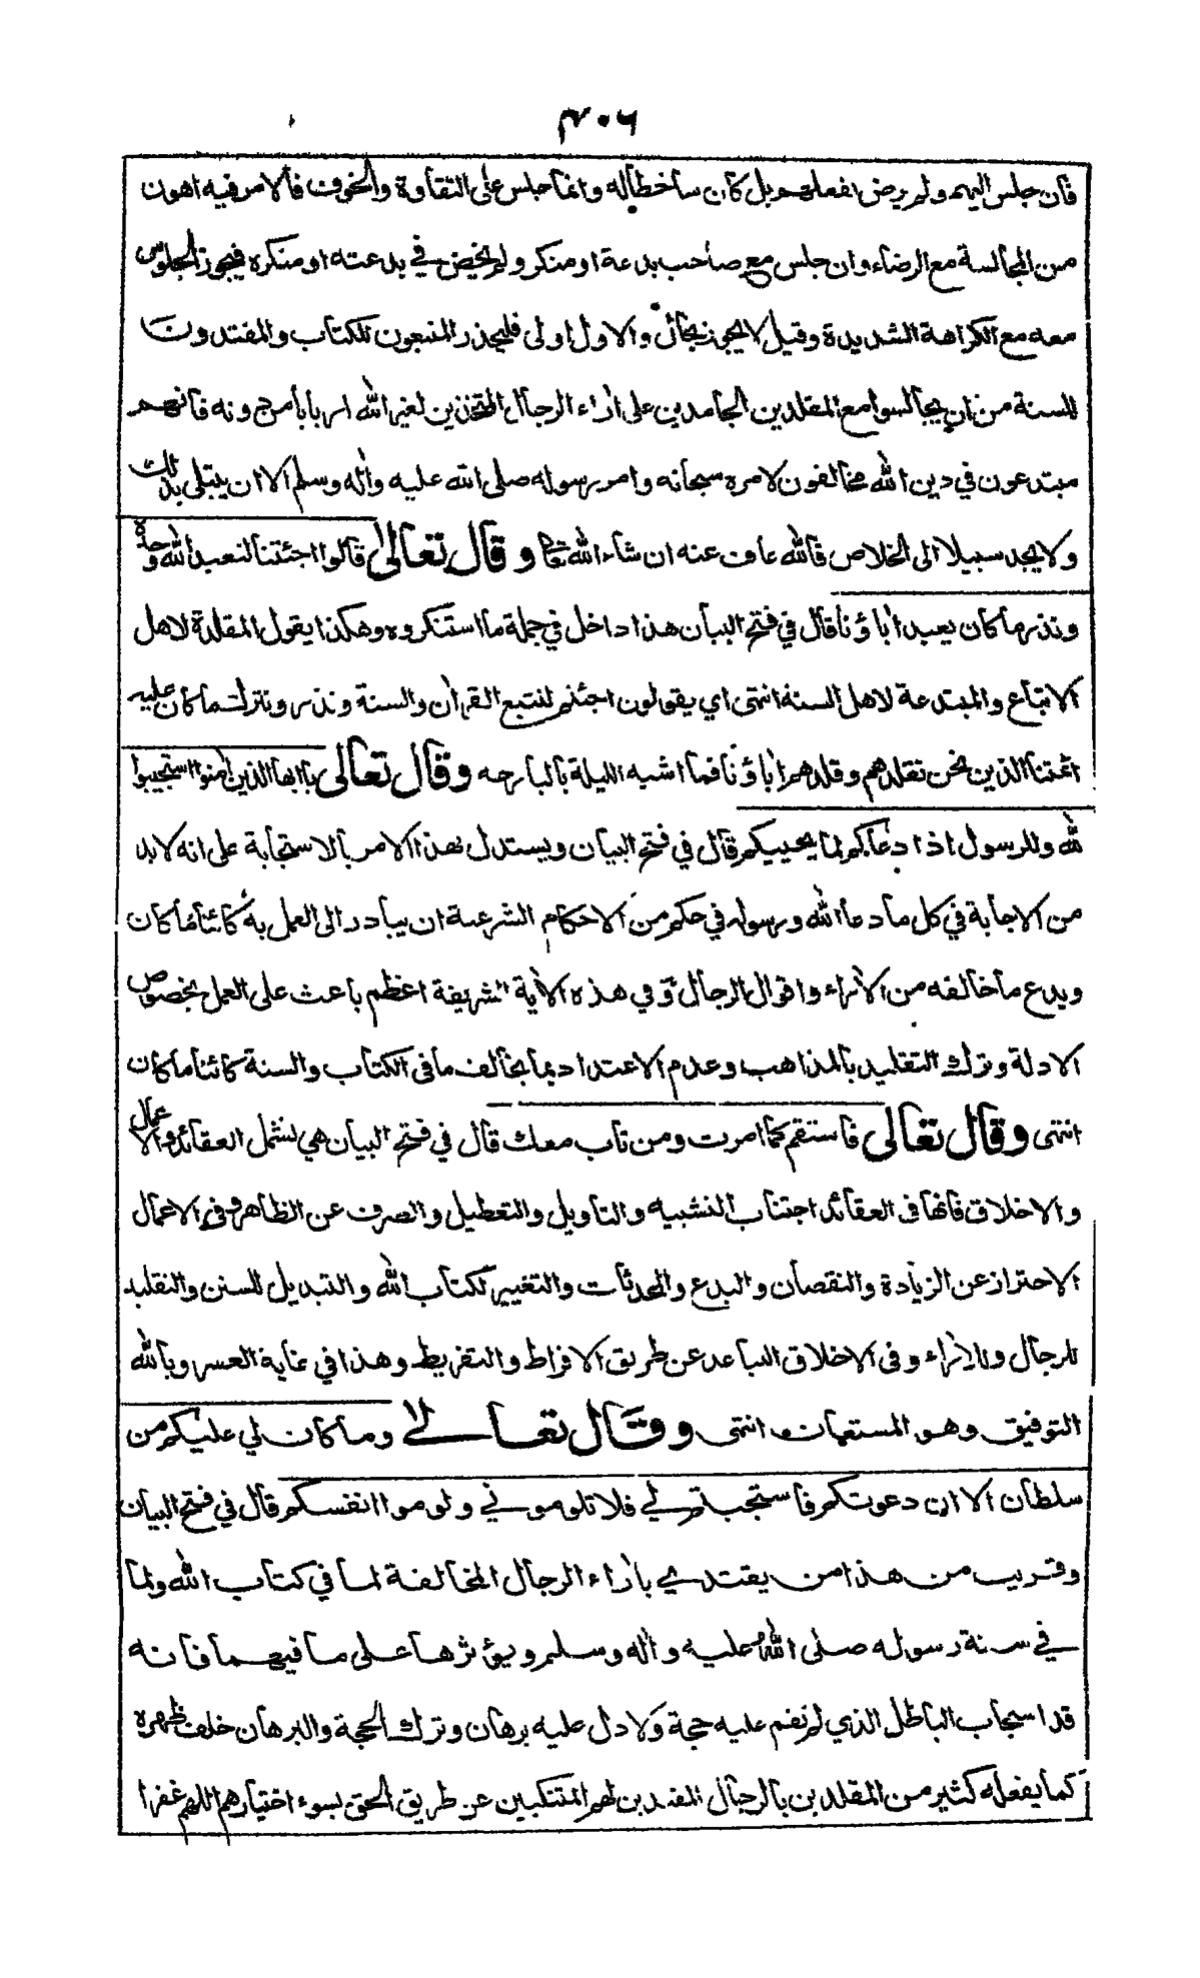 ٣٠٦
فان جلس اليهم ولم يرض بفعلهم بل كان ساخطا له وانما جلس على التقاوة والخوف فالامر فيه اهون
من المجالسة مع الرضاء وان جلس مع صاحب بدعة او منكر ولم يخض في بدعته او منكره فيجوز الجلوس
معه مع الكراهة الشديدة وقيل لا يجوز بحال والاول اولى فليحذر المتبعون للكتاب والمقتدون
للسنة من ان يجالسوا مع المقلدين الجامدين على اراء الرجال المتخذين لغير الله اربابا من دونه فانهم
مبتدعون في دين الله مخالفون لامره سبحانه وامر رسوله صلى الله عليه واله وسلم الا ان يبتلى بذلك
ولا يجد سبيلا الى الخلاص فالله عاف عنه ان شاء الله تعالى وقال تعالى قالوا اجئتنا لنعبد الله وحده
ونذر ما كان يعبد اباؤنا قال في فتح البيان هذا داخل في جملة ما استنكروه وهكذا يقول المقلدة لاهل
الاتباع والمبتدعة لاهل السنة انتهى اي يقولون اجئتم لنتبع القران والسنة ونذر ونترك ما كان عليه
ائمتنا الذين نحن نقلدهم وقلدهم اباؤنا فما اشبه الليلة بالبارحه وقال تعالى يا ايها الذين امنوا استجيبوا
لله وللرسول اذا دعاكم لما يحييكم قال في فتح البيان ويستدل بهذا الامر بالاستجابة على انه لا بد
من الاجابة في كل ما دعا الله ورسوله في حكم من الاحكام الشرعية ان يبادر الى العمل به كائنا ما كان
ويدع ما خالفه من الاراء واقوال الرجال وفي هذه الاية الشريفة اعظم باعث على العمل بخصوص
الادلة وترك التقليد بالمذاهب وعدم الاعتداد بما يخالف ما في الكتاب والسنة كائنا ما كان
انتهى وقال تعالى فاستقم كما امرت ومن تاب معك قال في فتح البيان هي تشمل العقائد والاعمال
والاخلاق فانها في العقائد اجتناب التشبيه والتاويل والتعطيل والصرف عن الظاهر وفي الاعمال
الاحتراز عن الزيادة والنقصان والبدع والمحدثات والتغيير لكتاب الله والتبديل للسنن والتقليد
للرجال والاراء وفي الاخلاق التباعد عن طريق الافراط والتفريط وهذا في غاية العسر وبالله
التوفيق وهو المستعان انتهى وقال تعالى وما كان لي عليكم من
سلطان الا ان دعوتكم فاستجبتم لي فلا تلوموني ولوموا انفسكم قال في فتح البيان
وقريب من هذا من يقتدي باراء الرجال المخالفة لما في كتاب الله ولما
في سنة رسوله صلى الله عليه واله وسلم ويؤثرها على ما فيهما فانه
قد استجاب الباطل الذي لم تقم عليه حجة ولا دل عليه برهان وترك الحجة والبرهان خلف ظهره
كما يفعله كثير من المقلدين بالرجال المقتدين لهم المتنكبين عن طريق الحق بسوء اختيارهم اللهم غفرا